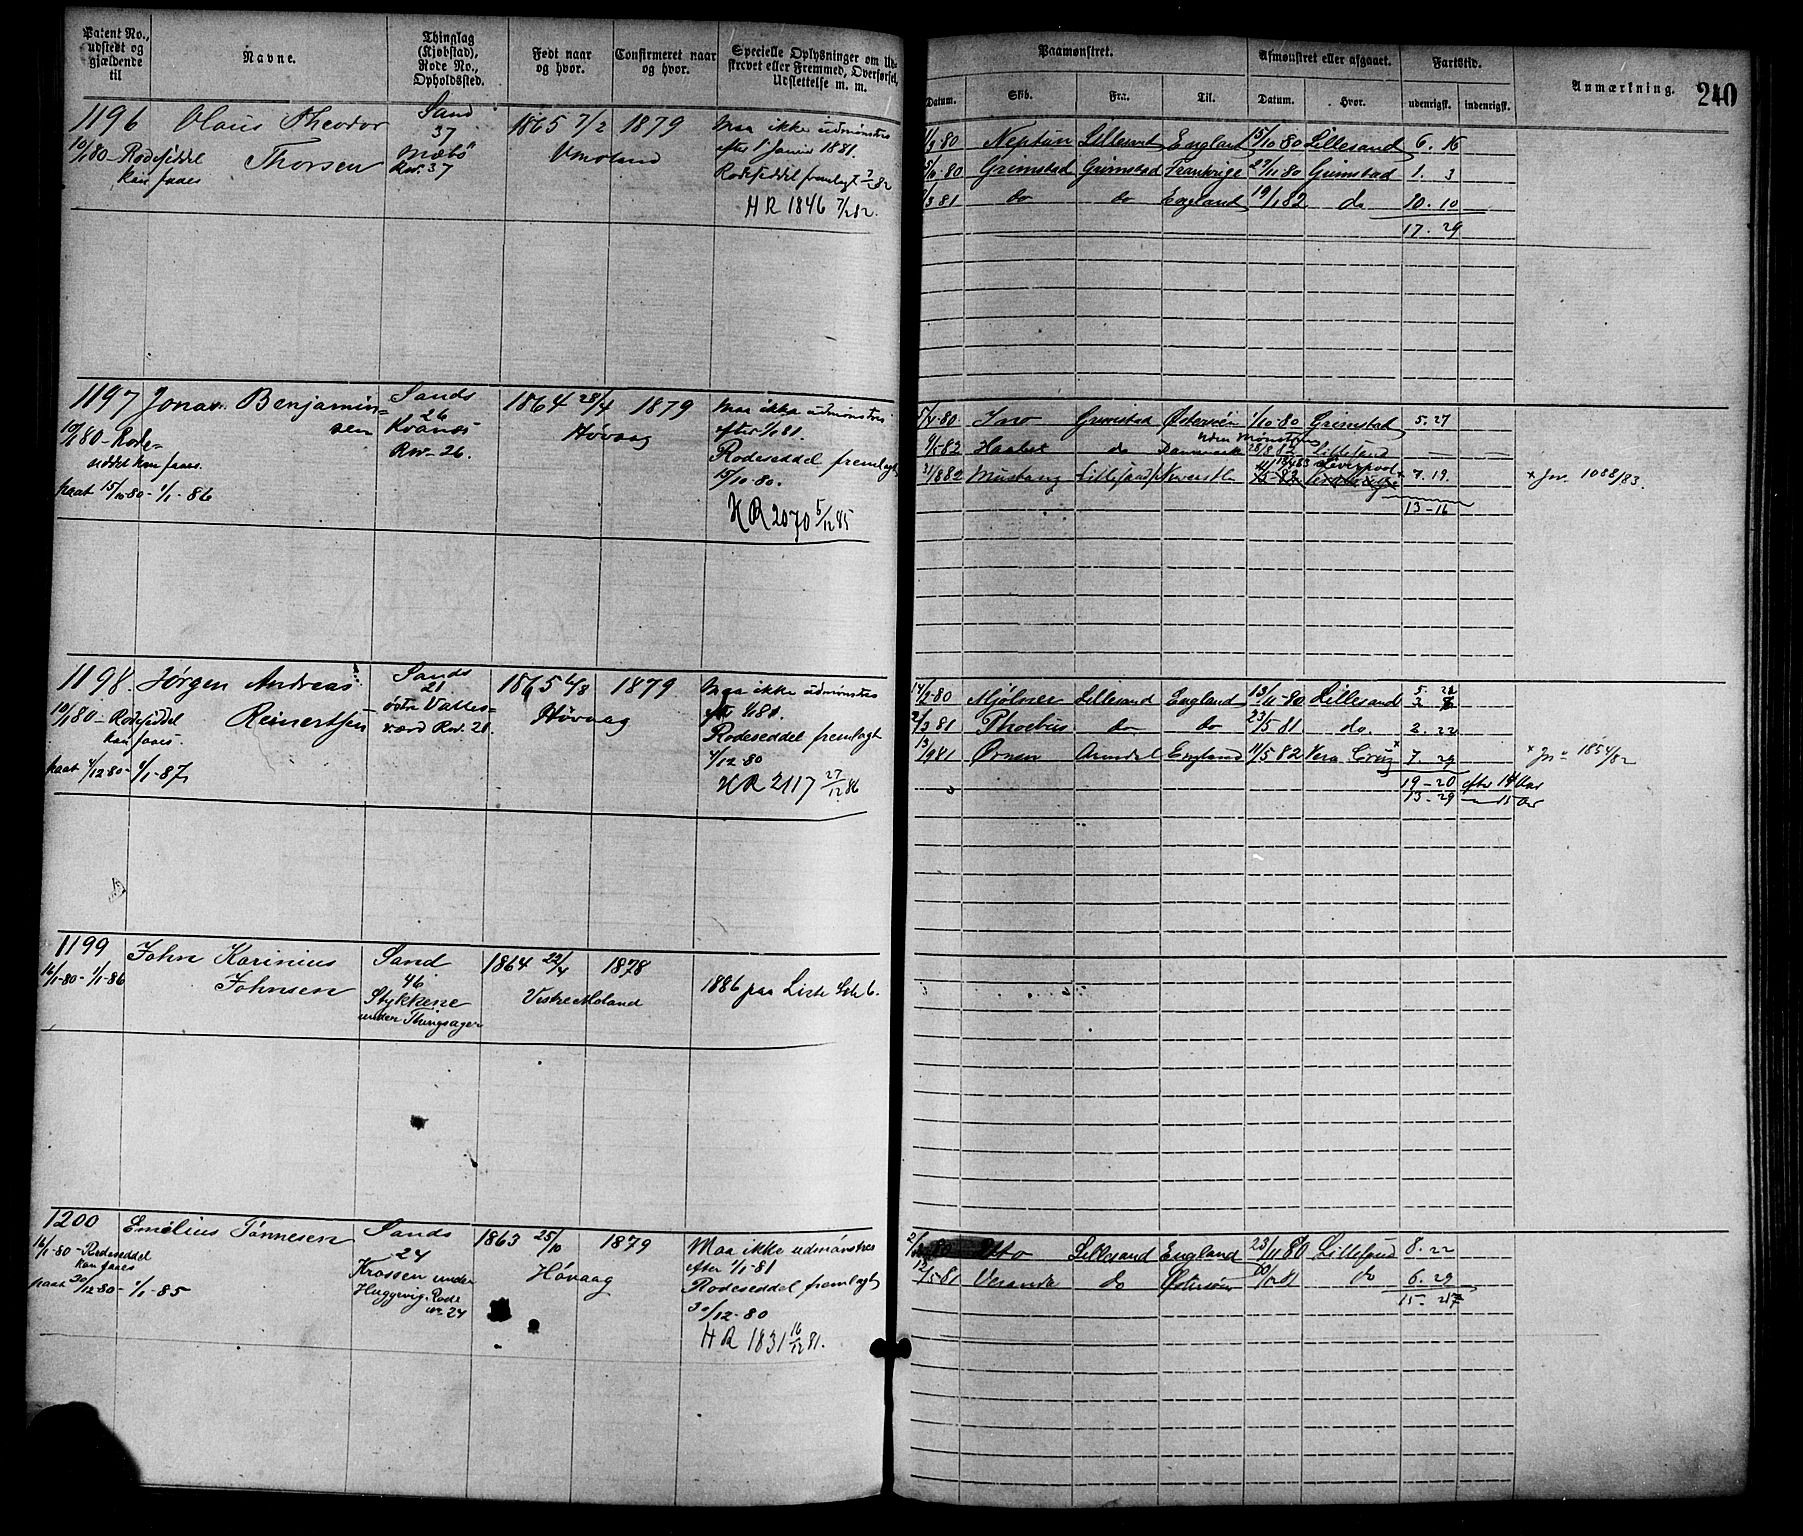 Patent No., udstedt og gjældende til
Navne.
Thinglag (Kjøbstad), Rode No., Opholdssted.
Født naar og hvor.
Confirmeret naar og hvor.
Specielle Oplysninger om Udskrevet eller Fremmed, Overførsel, Udslettelse m. m.
Paamønstret.
Afmønstret eller afgaaet.
Fartstid.
Anmærkning.
240
Datum.
Skib.
Fra.
Til.
Datum.
Hvor.
udenrigsk.
indenrigsk.
1196 Olaus Theodor Sand 1865 7/2 1879 Maa ikke udmønstres
10/1 80 - Rodeseddel Thorsen 37 V. Moland efter 1 Januar 1881.
kan faaes Mæbø Rodeseddel fremlagt 7/2 82
Rno. 37 HR 1846 7/2 82.
Neptun Lillesand England 15/10 80 Lillesand 6. 16
Grimstad Grimstad Frankrige 27/11 80 Grimstad 1. 3
do do England 19/1 82 do 10. 10
17. 29
1197 Jonas Benjamin- Sands 1864 28/4 1879 Maa ikke udmønstres
10/1 80 - Rode- sen 26 Høvaag efter 1/1 81.
seddel kan faaes. Kvanes Rodeseddel fremlagt
paat 15/10 80 - 1/1 - 86 Rno. 26. 15/10 - 80.
HR 2070 5/12 85
5/4 - 80 Ino Grimstad Østersøen 1/10 - 80 Grimstad 5. 27
Haabet do Danmark 28/8 82 Lillesand
uden Mønstring
31/8 82 Mustang Lillesand Liverpool 7. 19. x Jn. 1088/83.
13 - 16
1198. Jørgen Andreas Sands 1865 1879 Maa ikke udmønstres
10/1 80 - Rodeseddel Reinertsen 21 Høvaag eft. 1/1 80.
kan faaes. øvre Vatte- Rodeseddel fremlagt
paat 4/12 80 - 1/1 - 87 værd Rno. 21. 4/12 - 80
HR 2117 27/12 86
14/2 - 80 Mjølner Lillesand England 13/11 - 80 Lillesand
2/3 81 Phoebus do do 23/5 81 do. 2. 22
13/9 81 Ørnen Arendal England 11/5 82 Vera Cruz x 7. 29 x Jn - 1854/82
19 - 20 efter 14 Aar
13 - 29 - 15 Aar
1199 John Karinius Sand 1864 22/4 1878
16/1 - 80 - 1/1 - 86 Johnsen 46 Vestre Moland 1886 paa Liste Litr 6.
Stykkene
under Thingsager
1200 Emilius Tønnesen Sands 1863 25/10 1879 Maa ikke udmønstres
16/1 - 80 - Rodeseddel 24 Høvaag efter 1/1 - 81
kan faaes Krossen under Rodeseddel fremlagt
paat 30/12 80 - 1/1 - 85 Huggevig. Rode 30/12 - 80
no 24 HR 1831 16/12 81.
Lillesand England 23/11 80 Lillesand 8. 22
12/5 81 Veranda do Østersøen do 6. 29